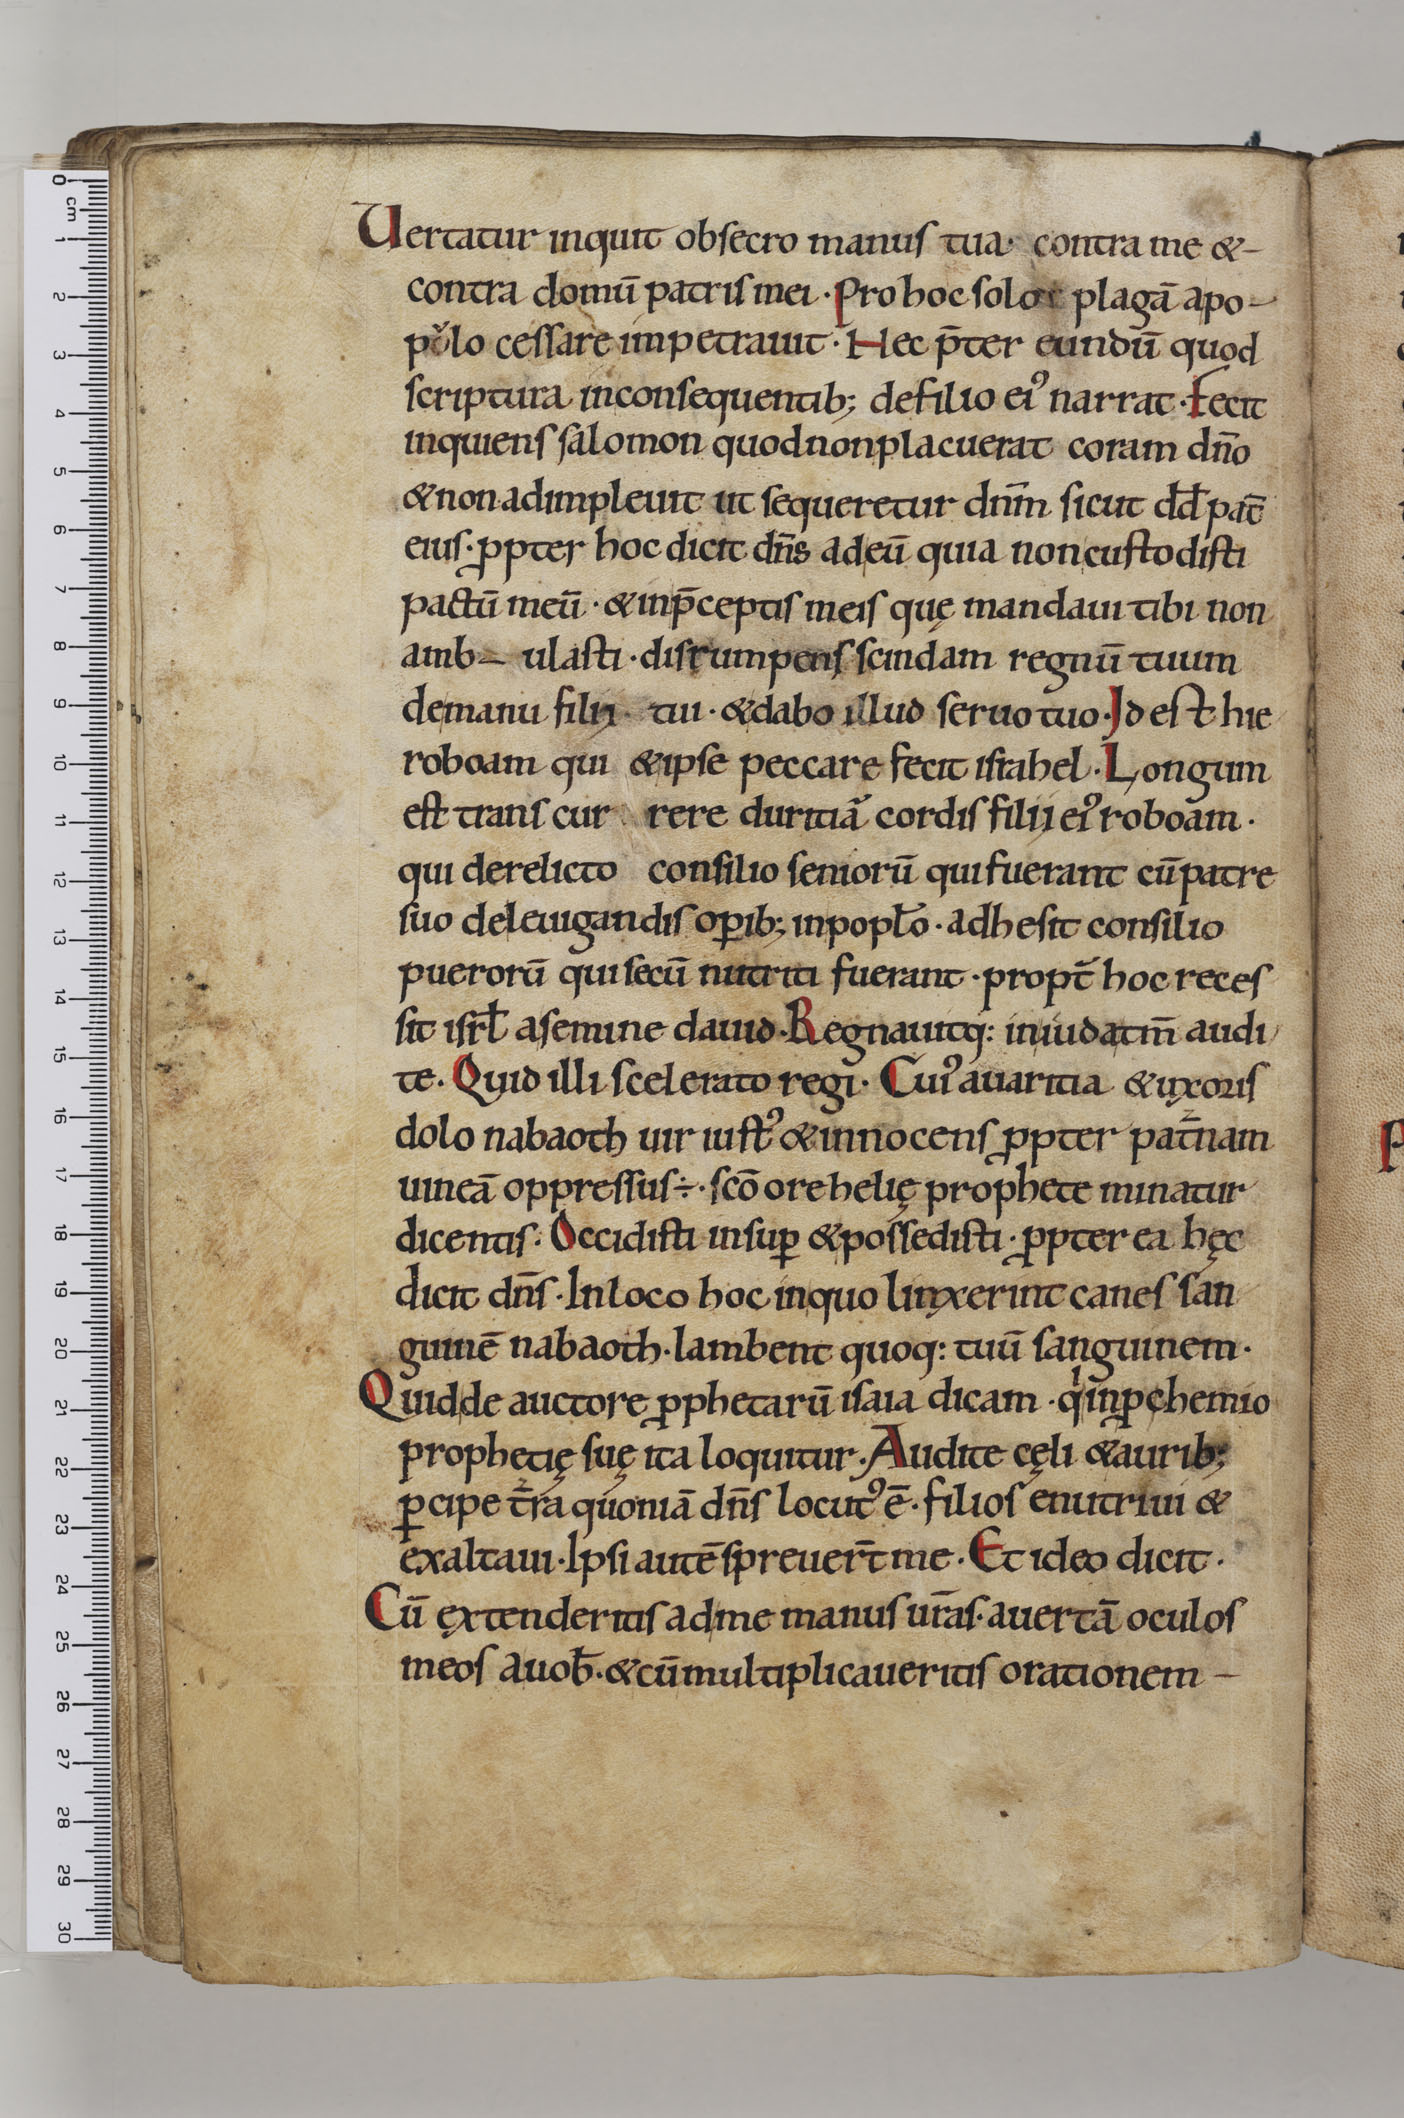 Uertatur inquit obsecro manus tua· contra me &-
contra domū patris mei· Pro hoc solo plagā apo-
pŭlo cessare impetrauit· Hec p̄ter eundū quod
scriptura inconsequentib; defilio eiꝰ narrat· Fecit
inquiens salomon quodnonplacuerat coram dn̄o
& non adimpleuit ut sequeretur dn̄m sicut dd̄ pat̄
eius· ꝓpter hoc dicit dn̄s adeū quia noncustodisti
pactū meū· & inp̄ceptis meis quę mandaui tibi non
amb- ulasti· disrumpens scindam regnū tuum
demanu filii tui· & dabo illud seruo tuo· Id est hie
roboam qui & ipse peccare fecit israhel· Longum
est transcur rere duritiā cordis filii eiꝰ roboam·
qui derelicto consilio seniorū qui fuerant cū patre
suo deleuigandis oꝑib; inpopl̄o· adhesit consilio
puerorū qui secū nutriti fuerant· propt̄ hoc reces
sit isrł asemine dauid· Regnauitq: iniudatm̄ audi
te· Quid illi scelerato regi· Cuiꝰ auaritia & uxoris
dolo nabaoth uir iustꝰ & innocens ꝓpter pat̄nam
uineā oppressus÷· scō ore helię prophete minatur
dicentis· Occidisti insuꝑ & possedisti· ꝓpter ea hęc
dicit dn̄s· In loco hoc inquo linxerint canes san
guinē nabaoth· lambent quoq: tuū sanguinem·
Quidde auctore ꝓphetarū isaia dicam· qⁱ inꝓchemio
prophetię suę ita loquitur· Audite cęli & aurib;
ꝑcipe t̄ra quoniā dn̄s locutꝰ ē· filios enutriui &
exaltaui· Ipsi autē spreuer̄t me· Et ideo dicit·
Cū extenderitis adme manus ur̄as· auertā oculos
meos auob̄· & cū multiplicaueritis orationem -